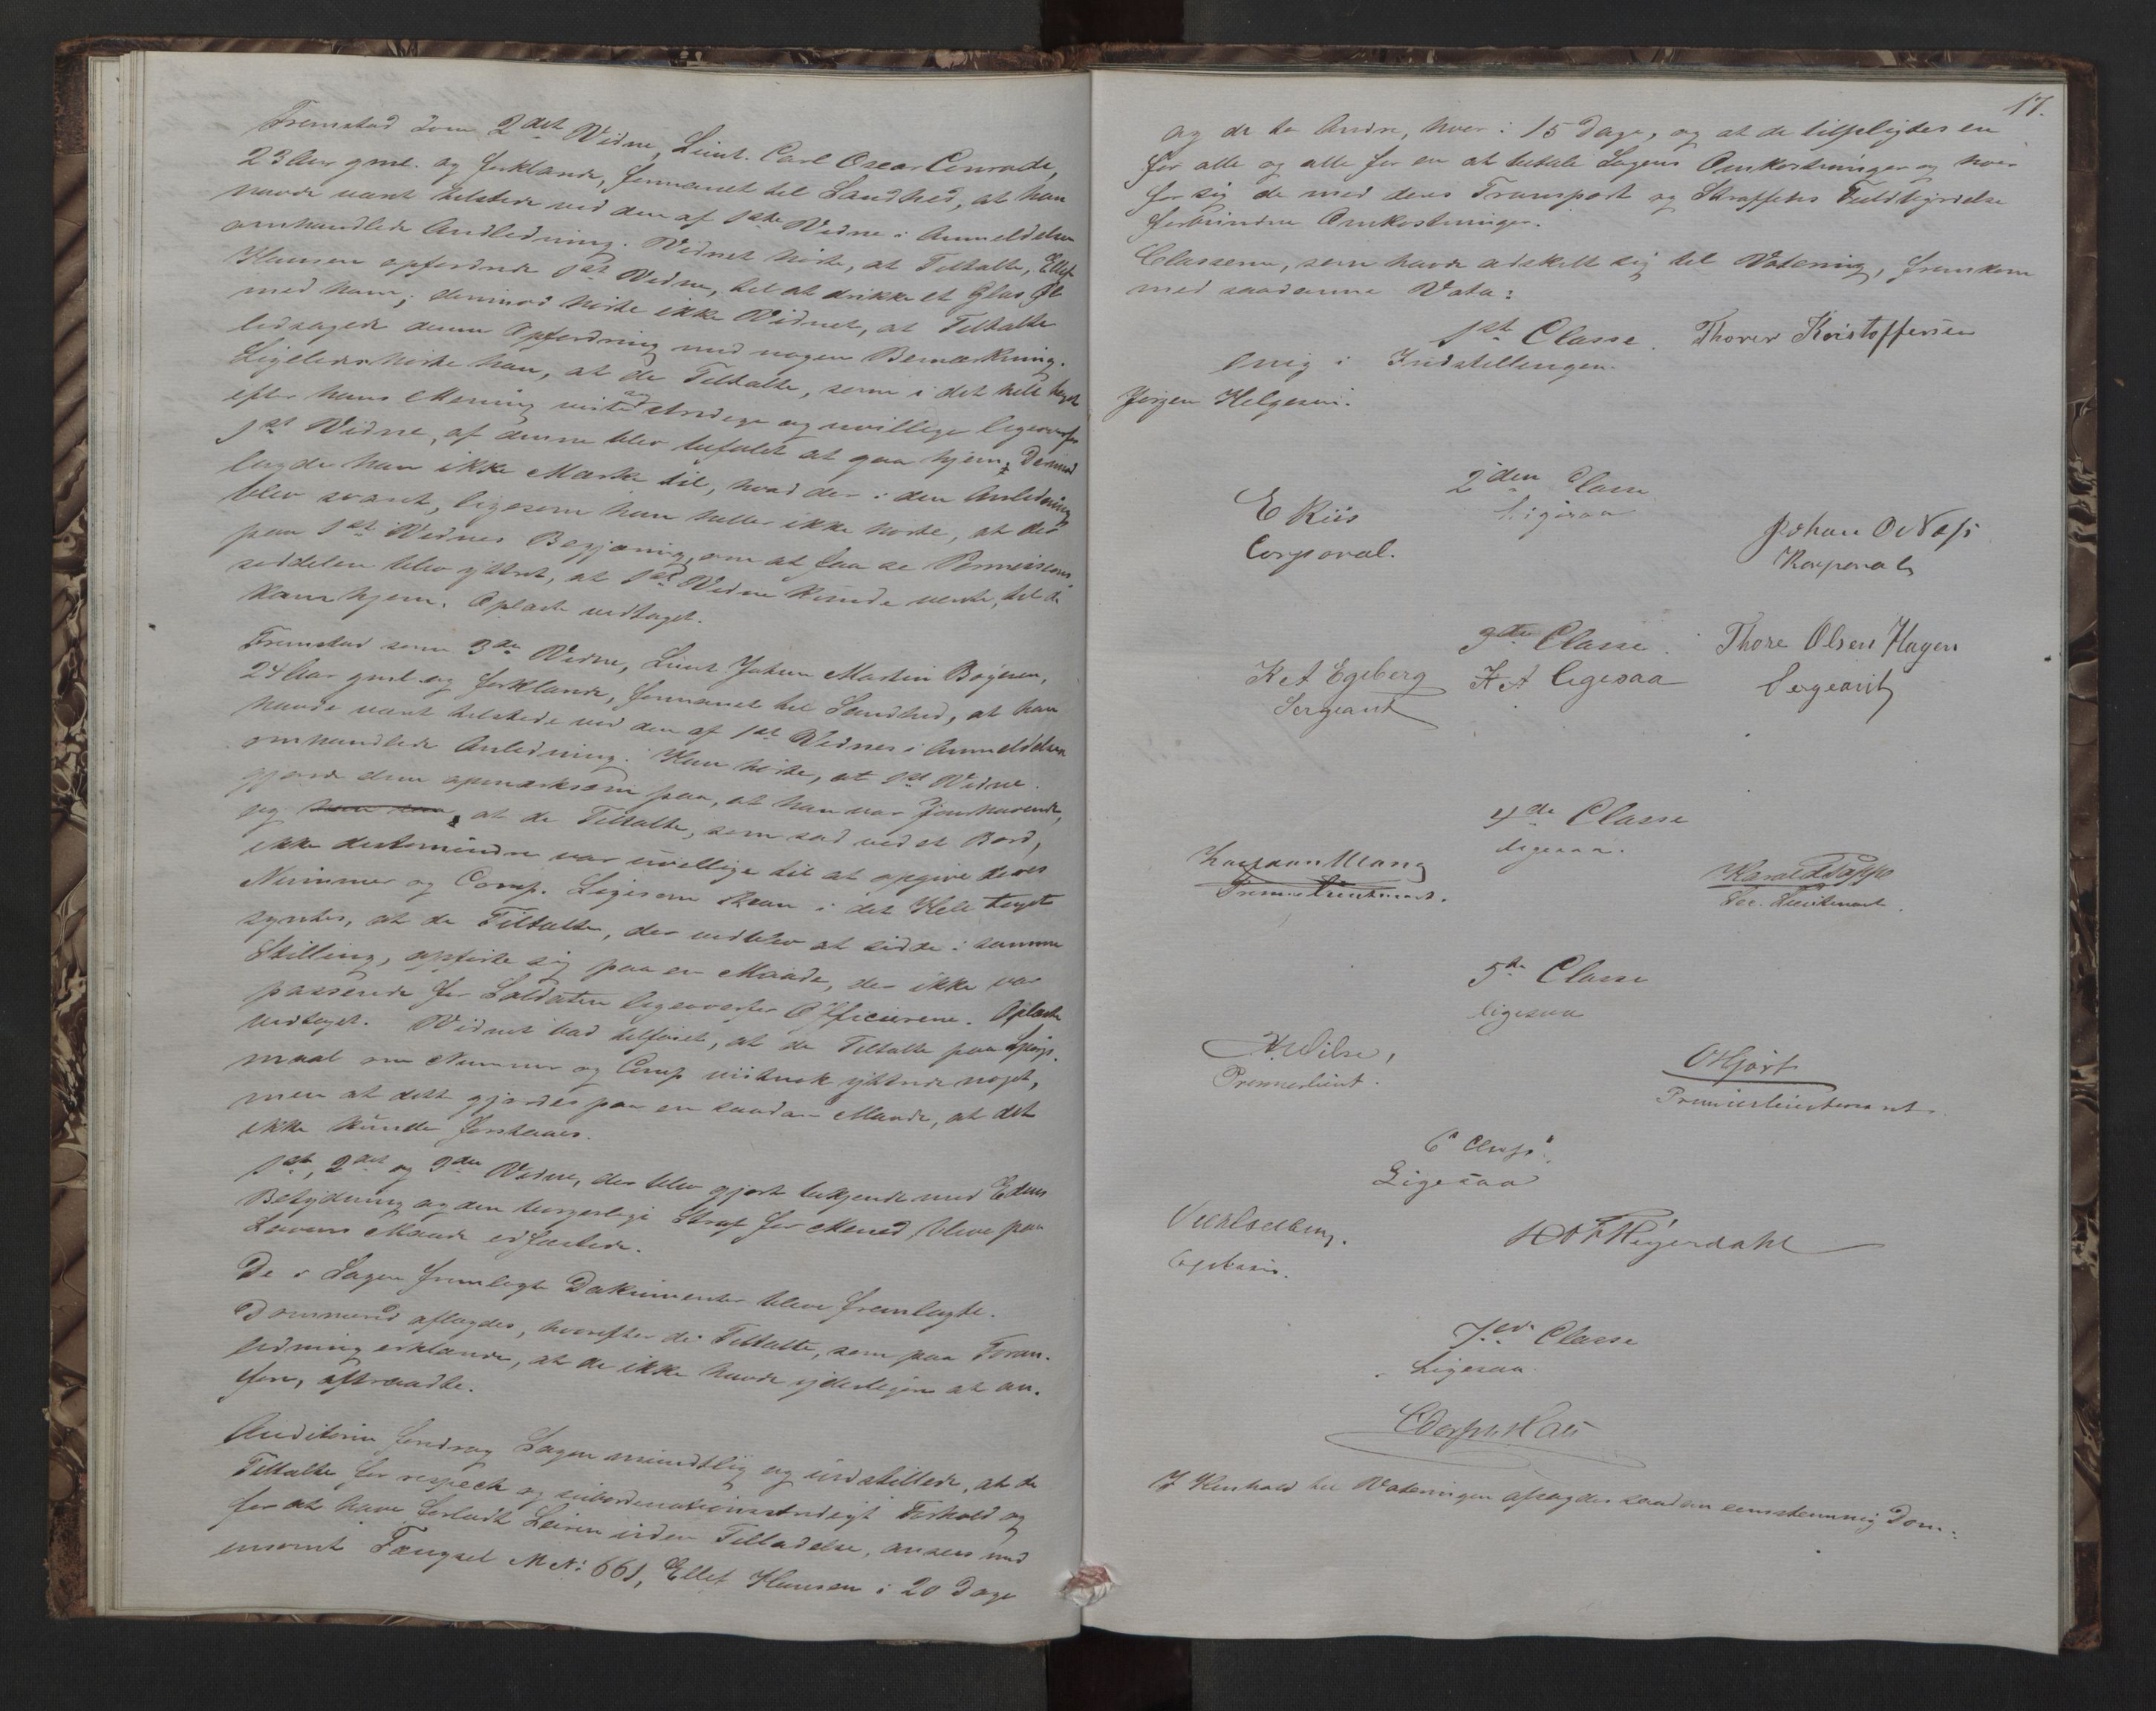 Fremstod som 2det Vidne, Leut. Carl Oscar Conrade,
23 Aar gml. og forklarede, formanet til Sandhed, at han
havde været tilstede ved den af 1ste Vidne i Anmeldelsen
omhandlede Andledning. Vidnet hørte, at Tiltalte, Ellef
Hansen opfordrede 1st Vidne, til at drikke et Glas Øl
med ham; derimod hørte ikke Vidnet, at Tiltalte
ledsagede denne Opfordring med nogen Bemærkning.
Ligeledes hørte han, at de Tiltalte, som i det hele taget
efter hans Mening viste sig studse og uvillige ligeoverfor
1st Vidne, af denne blev befalet at gaa hjem; Derimod
lagde han ikke Mærke til, hvad der i den Anledning
blev svaret, ligesom han heller ikke hørte, at der
paa 1st Vidnes Begjæring om at faa se Permissions-
seddelen blev yttret, at 1st Vidne kunde vente, til de
kom hjem. Oplæst vedtaget.
Fremstod som 3die Vidne, Leut Johan Martin Bøgesen,
24 Aar gml. og forklarede, formanet til Sandhed, at han
havde været tilstede ved den af 1st Vidnes i Anmeldelsen
omhandlede Anledning. Han hørte, at 1st Vidne
gjorde dem opmærksom paa, at han var Jourhavende,
og at de Tiltalte, som sad ved et Bord,
ikke destomindre var uvillige til at opgive deres
Nummer og Comp. Ligesom Han i det Hele taget
syntes, at de Tiltalte, der vedblev at sidde i samme
Stilling, opførte sig paa en Maade, der ikke var
passende for Soldaten ligeoverfor Officererne. Oplæst
vedtaget. Vidnet bad tilføiet, at de Tiltalte paa Spørgs-
maal om Nummer og Comp vistnok yttrede noget,
men at dette gjordes paa en saadan Maade, at det
ikke kunde forstaaes.
1st, 2det og 3die Vidne, der blev gjort bekjendt med Edens
Betydning og den borgerlige Straf for Mened, bleve paa
Lovens Maade edfæstede.
De i Sagen fremlagte Dokumenter bleve fremlagte.
Dommered aflagdes, hvorefter de Tiltalte, som paa Foran-
ledning erklærede, at de ikke havde yderligere at an-
føre, aftraadte.
Auditøren foredrog Sagen mundtlig og indstillede, at de
Tiltalte for respect og subordinationsstridigt Forhold og
for at have forladt Leiren uden Tilladelse, ansees med
ensomt Fængsel M N: 661, Ellef Hansen i 20 Dage
17.
og de to Andre, hver i 15 Dage, og at de tilpligtes en
for alle og alle for en at betale Sagens Omkostninger og hver
for sig de med deres Transport og Straffens Fuldbyrdelse
forbundne Omkostninger.
Classerne, som havde adskilt sig til Votering, fremkom
med saadanne Vota:
1st Classe. Thorer Kristoffersen
Enig i Indstillingen.
Jørgen Helgesen.
2den Classe
E Riis Ligesaa Johan O Næss
Corporal. Korporal
3die Classe. Thore Olsen Hagen
K A Egeberg ligesaa Sergeant
Sergeant
4de Classe
ligesaa.
Premierlieutenant. Sec. Lieutenant.
5te Classe
ligesaa
N. Wilse, O Hjort
Premierlieut. Premierlieutenant.
6te Classe
Ligesaa
Heyerdahl
Capitain.
7de Classe
Ligesaa.
I Henhold til Voteringen afsagdes saadan eensstemmig Dom: